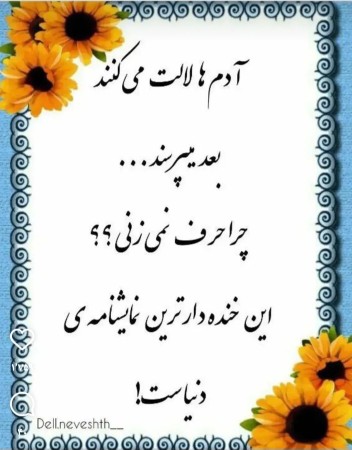 آدم ها لالت می کنند
بعد میپرسند...
چرا حرف نمی زنی؟؟
این خنده دارترین نمایشنامه ی
دنیاست!
Dell.neveshth__